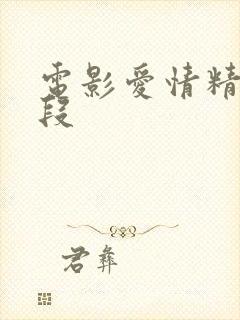 電影愛情精
段
君彝